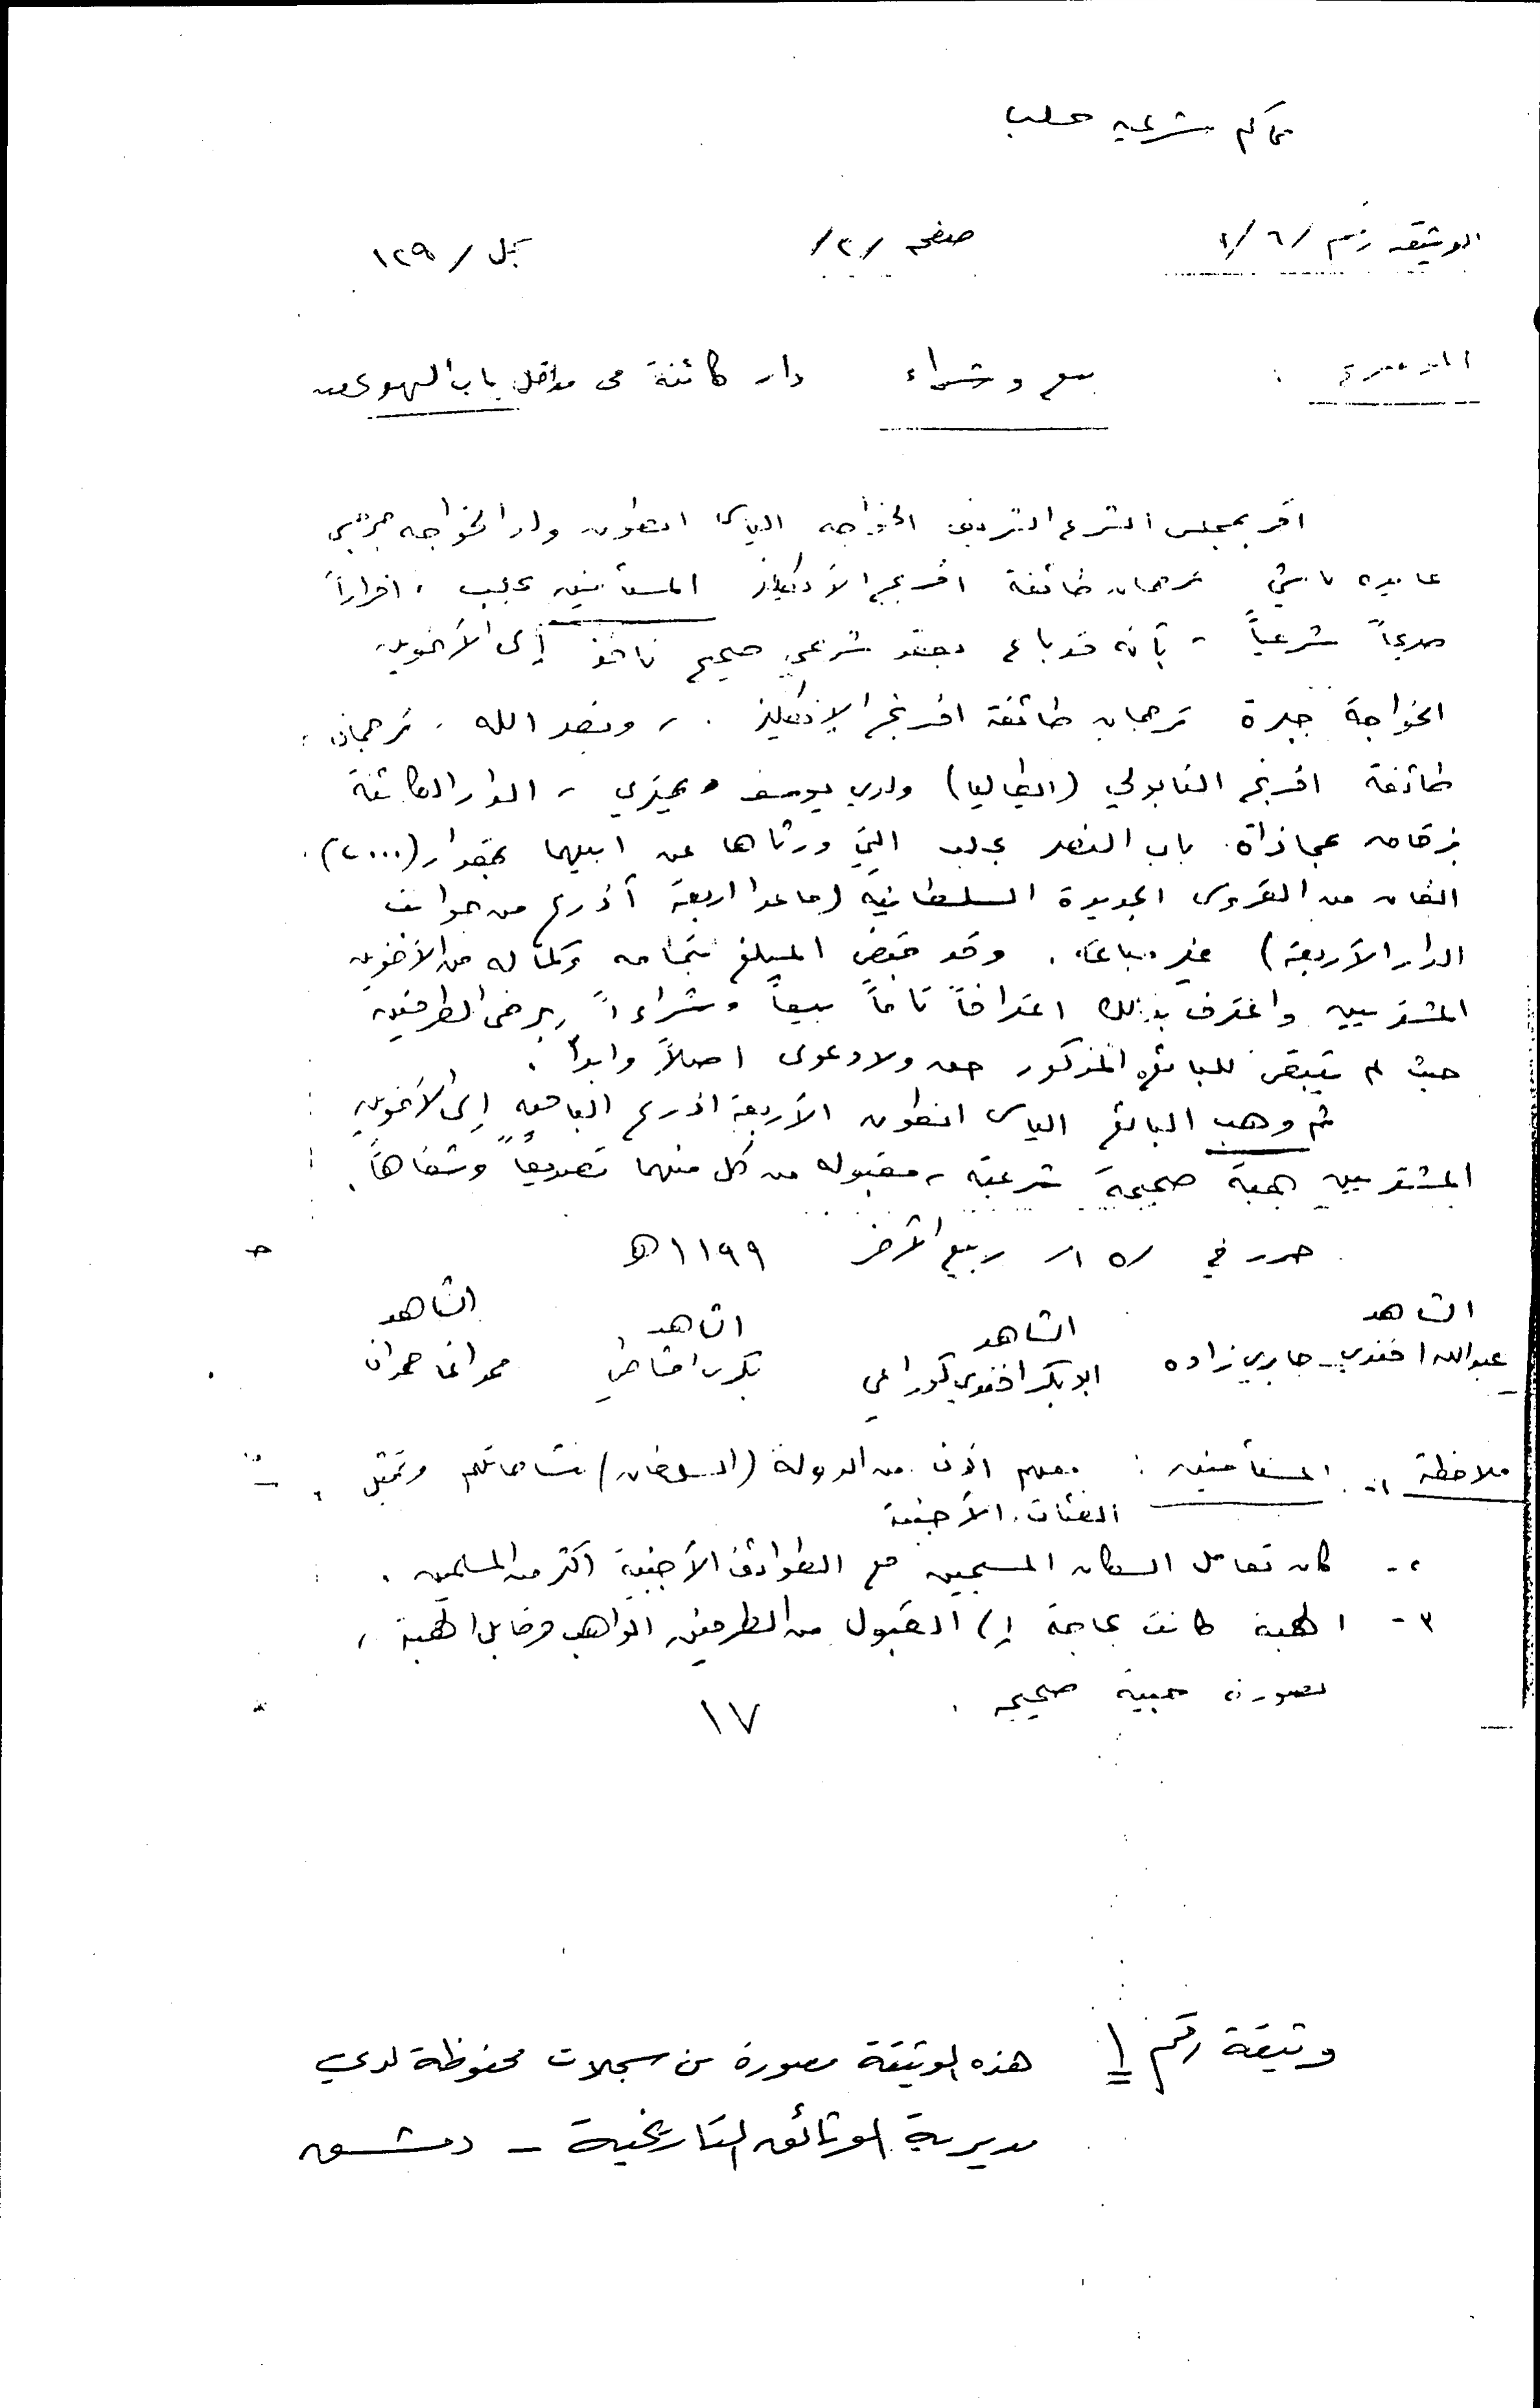 محاكم شرعية حلب
الوثيقة رقم /٦/ صفحة /٢/ سجل / ١٢٩
الموضوع : بيع وشراء دار كائنة في داخل باب
اقر بمجلس الشرع الشريف الخواجه الياس انطون ولد الخواجه جرجس
عايده ترجمان طائفة افرنج الانكليز المستأمنين بحلب ، اقراراً
صريحاً شرعياً - بأنه قد باع بعقد شرعي صحيح نافذ إلى الأخوين
الخواجة جبرة ترجمان طائفة افرنج الانكليز . ونصر الله . ترجمان
طائفة افرنج النابولي (ايطاليا) ولدي يوسف ، الدار الكائنة
بزقاق بمحاذاة باب النصر بحلب التي ورثاها عن ابيهما بمقدار (٢٠٠٠)
الفان من القروش الجديدة السلطانية (ما عدا اربعة أذرع من جوانب
الدار الأربعة) غير مباعة . وقد قبض المبلغ بتمامه وكماله من الأخوين
المشتريين واعترف بذلك اعترافاً تاماً بيعاً وشراءاً برضى الطرفين
حيث لم يتبقى للبائع المذكور حق ولا دعوى اصلاً وابداً .
ثم وهب البائع الياس انطون الأربعة اذرع الباقية إلى الأخوين
المشتريين هبة صحيحة شرعية ، مقبوله من كل منهما تصديقاً وشفاهاً .
حرر في /١٥/ ربيع الآخر ١١٩٩ هـ
الشاهد الشاهد الشاهد الشاهد
عبدالله افندي جابري زاده ابو بكر افندي بكري محمد اغا حمدان
ملاحظة ١- المستأمنين : معهم اذن من الدولة (السلطان) وتمثل
الفئات الأجنبية
٢- كان تعامل السكان المسيحين مع الطوائف الأجنبية اكثر من المسلمين .
٣- الهبة كانت بحاجة إلى القبول من الطرفين الواهب وقابل الهبة ،
بصورة صحيحه .
١٧
وثيقة رقم ١ هذه الوثيقة مصورة من سجلات محفوظة لدى
مديرية الوثائق التاريخية - دمشق